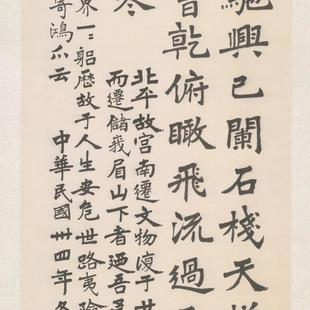 興已闌石棧天
乾俯瞰飛流過
北平故宮南遷文物復于廿
而遷儲峩眉山下者迺吾
界一：躳歷故于人生安危世路夷險
寄鴻爪云 中華民國卅四年冬